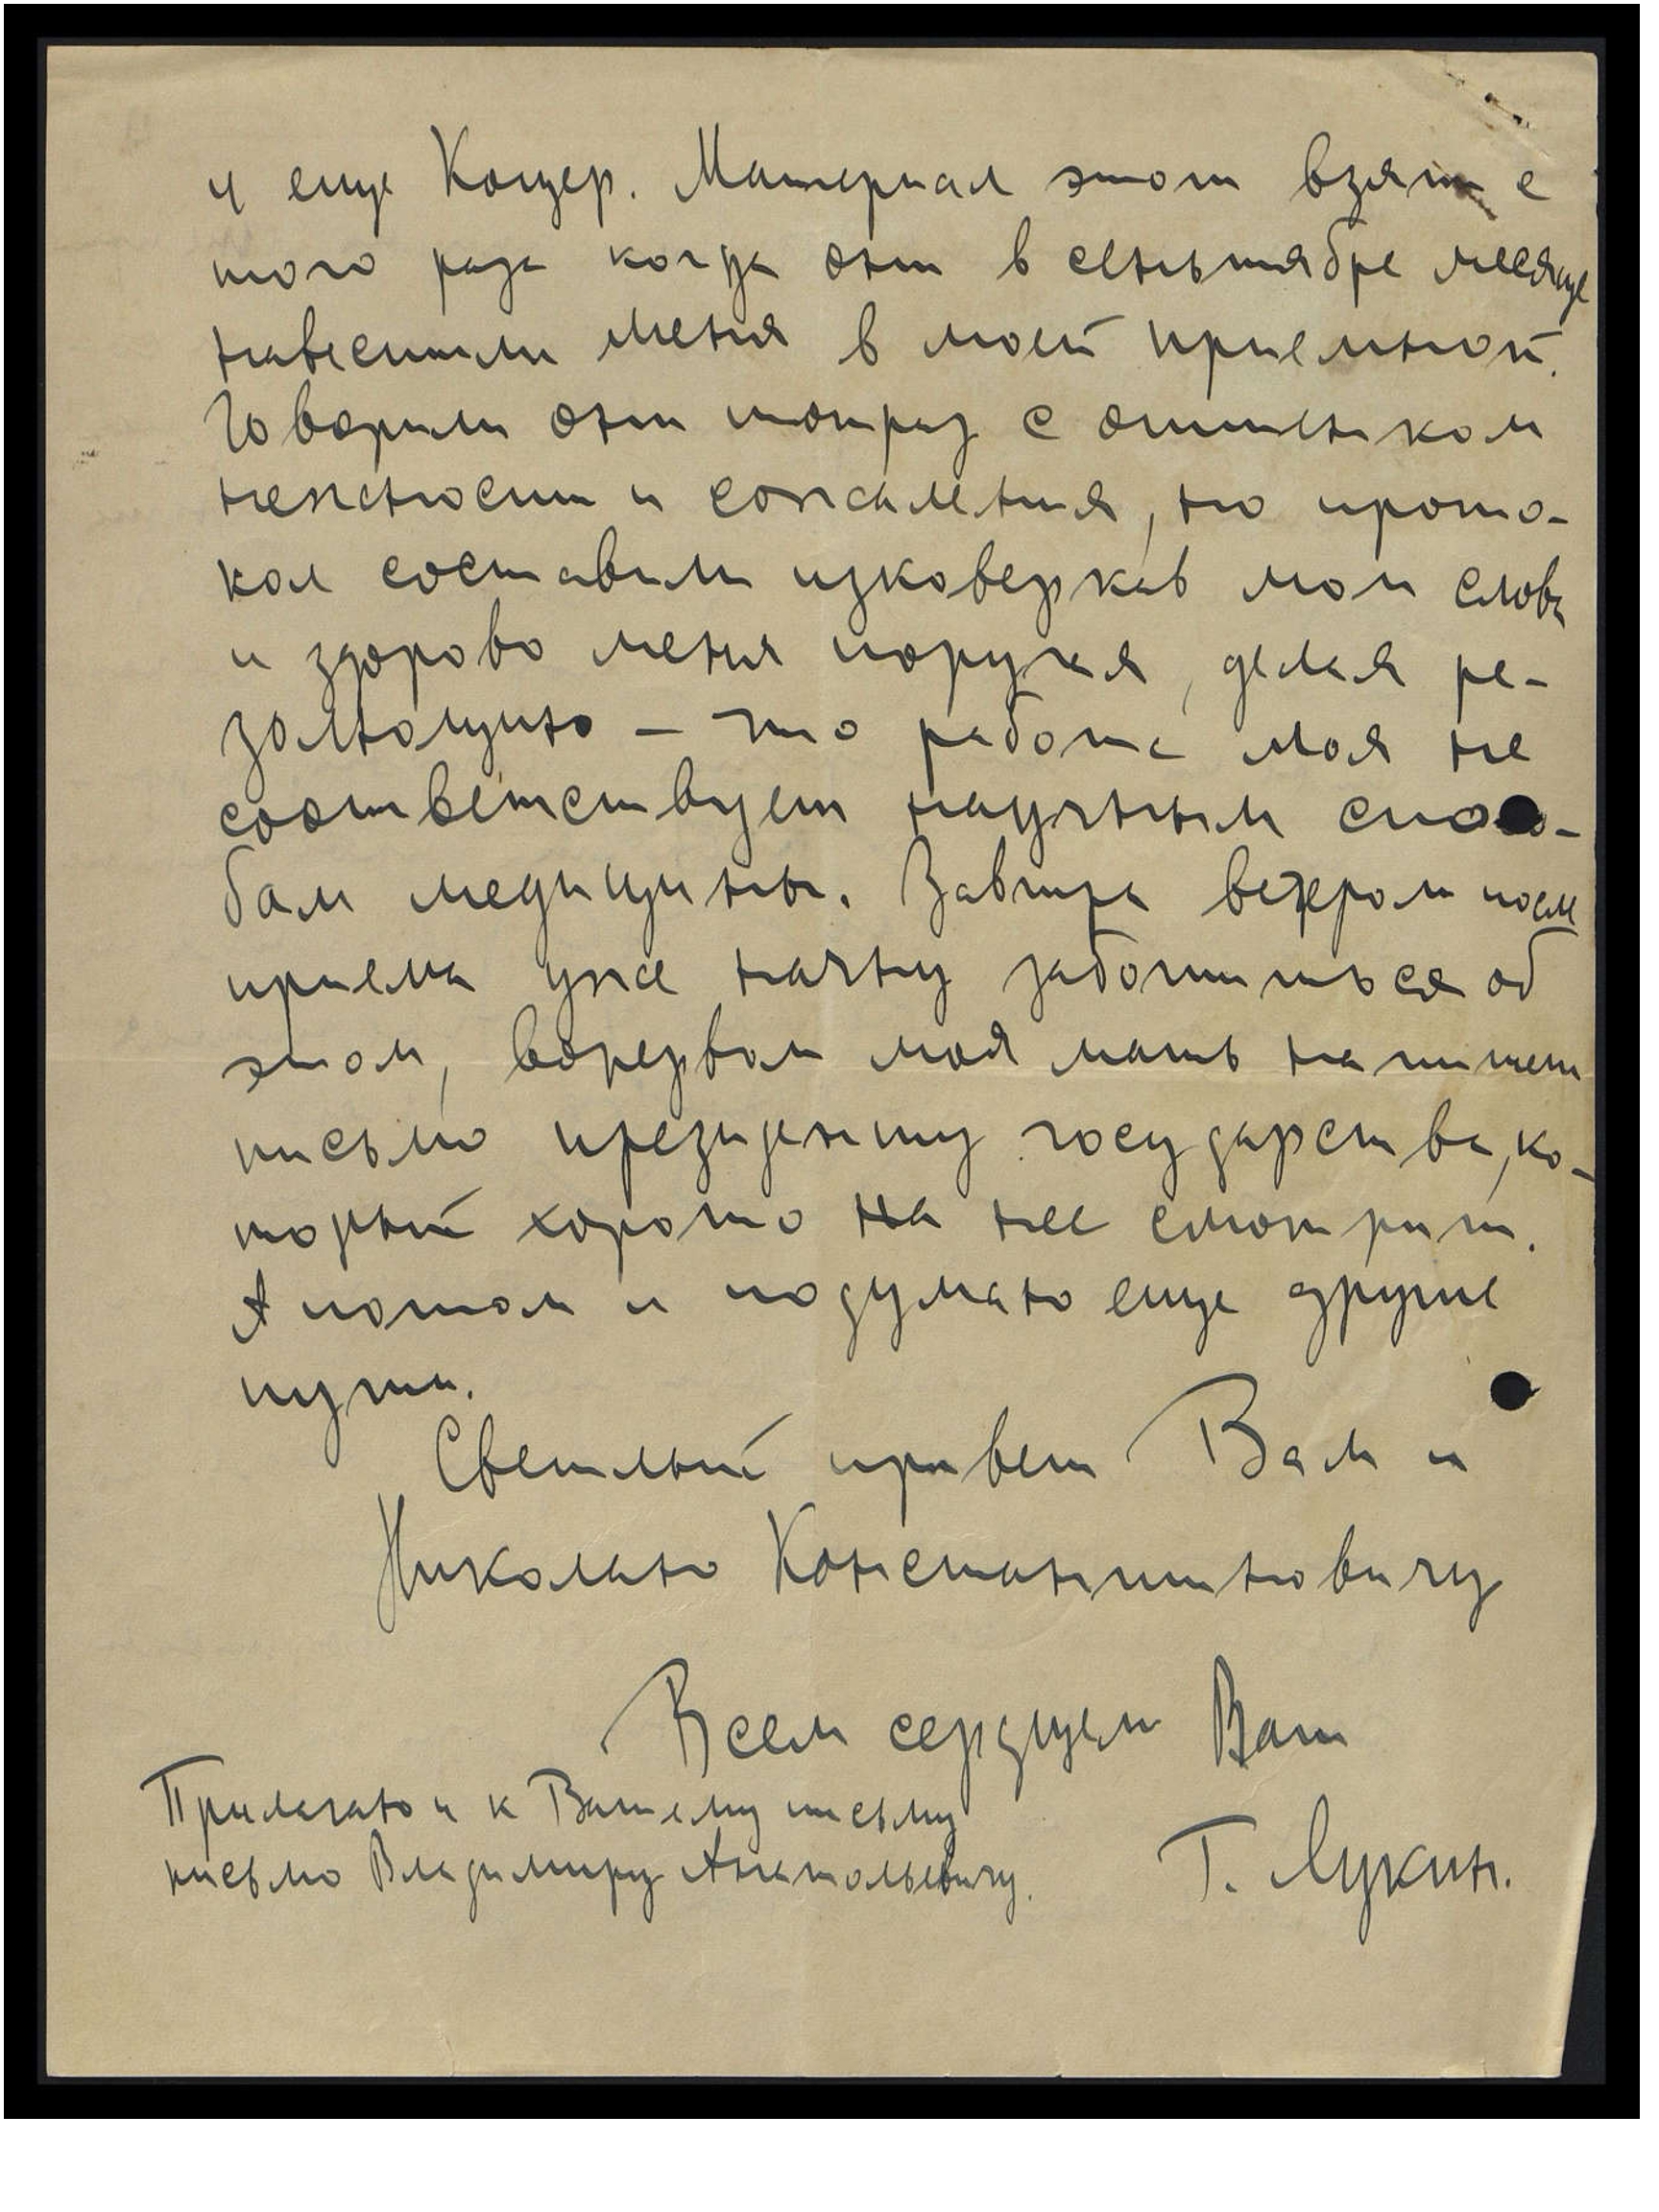 и еще Коцер. Материал этот взят с
того раза когда они в сеньтябре месяце
навестили меня в моей приемной.
Говорили они тот раз с оттенком
нежности и сожаления, но прото-
кол составили изковеркав мои слова
и здорово меня поругая, делая ре-
золюцию – что работа моя не
соответствует научным спосо-
бам медицины. Завтра вечером после
приема уже начну заботиться об
этом, моя мать напишет
письмо президенту государства, ко-
торый хорошо на нее смотрит.
А потом и подумаю еще другие
пути.
Светлый привет Вам и
Николаю Константиновичу
Всем сердцем Ваш
Прилагаю и к Вашему письму
письмо Владимиру Анатольевичу.
Г. Лукин.